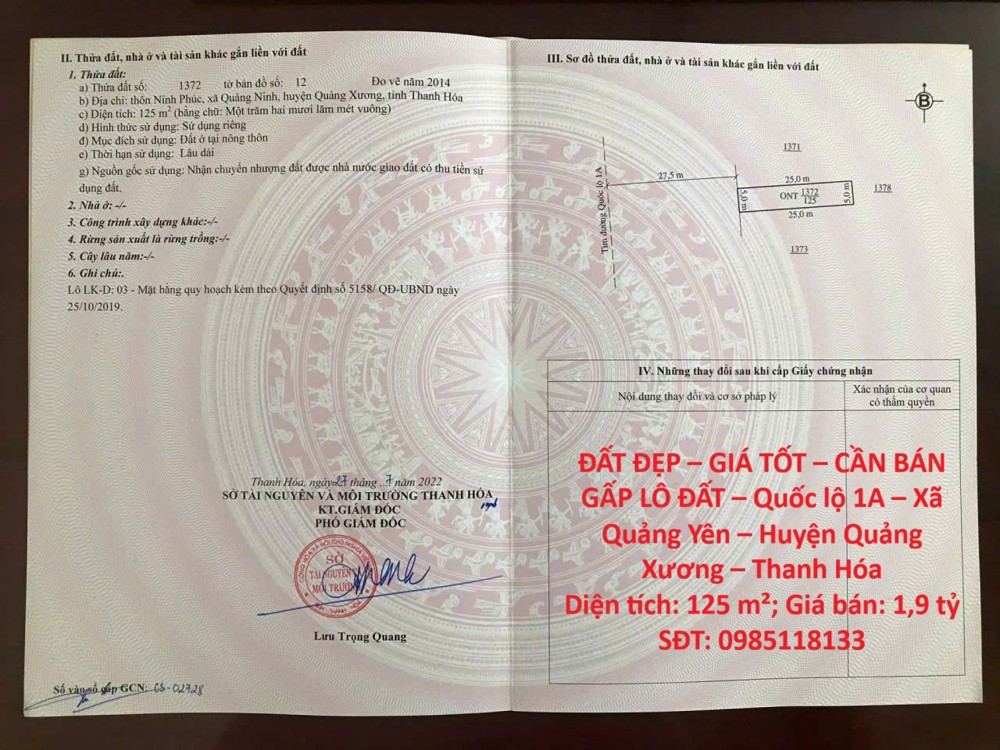 II. Thửa đất, nhà ở và tài sản khác gắn liền với đất
1. Thửa đất:
a) Thửa đất số: 1372 tờ bản đồ số: 12 Đo vẽ năm 2014
b) Địa chỉ: thôn Ninh Phúc, xã Quảng Ninh, huyện Quảng Xương, tỉnh Thanh Hóa
c) Diện tích: 125 m² (bằng chữ: Một trăm hai mươi lăm mét vuông)
d) Hình thức sử dụng: Sử dụng riêng
đ) Mục đích sử dụng: Đất ở tại nông thôn
e) Thời hạn sử dụng: Lâu dài
g) Nguồn gốc sử dụng: Nhận chuyển nhượng đất được nhà nước giao đất có thu tiền sử
dụng đất.
2. Nhà ở: -/-
3. Công trình xây dựng khác:-/-
4. Rừng sản xuất là rừng trồng:-/-
5. Cây lâu năm:-/-
6. Ghi chú:.
Lô LK-D: 03 - Mặt bằng quy hoạch kèm theo Quyết định số 5158/ QĐ-UBND ngày
25/10/2019.
Thanh Hóa, ngày 27 tháng .7 năm 2022
SỞ TÀI NGUYÊN VÀ MÔI TRƯỜNG THANH HÓA
KT.GIÁM ĐỐC
PHÓ GIÁM ĐỐC
SỞ
TÀI NGUYÊN
MÔI TRƯỜNG
Lưu Trọng Quang
Số vào sổ cấp GCN: CS-02728
III. Sơ đồ thửa đất, nhà ở và tài sản khác gắn liền với đất
B
1371
27,5 m
25,0 m
1378
Tim đường Quốc lộ 1A
5,0 m
ONT 1372
125
5,0 m
25,0 m
1373
IV. Những thay đổi sau khi cấp Giấy chứng nhận
Nội dung thay đổi và cơ sở pháp lý
Xác nhận của cơ quan
có thẩm quyền
ĐẤT ĐẸP – GIÁ TỐT – CẦN BÁN
GẤP LÔ ĐẤT – Quốc lộ 1A – Xã
Quảng Yên – Huyện Quảng
Xương – Thanh Hóa
Diện tích: 125 m²; Giá bán: 1,9 tỷ
SĐT: 0985118133